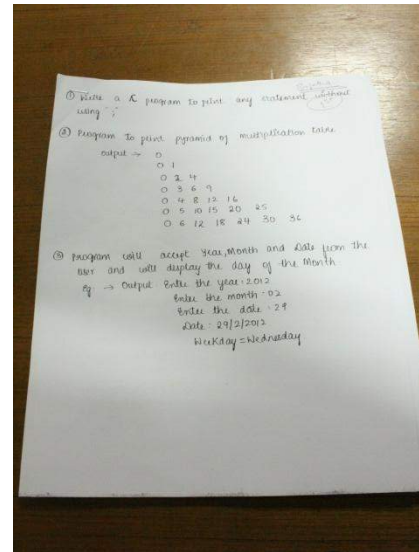 ① Write a C program to print any statement without
using ";"
② Program to print pyramid of multiplication table
output → 0
0 1
0 2 4
0 3 6 9
0 4 8 12 16
0 5 10 15 20 25
0 6 12 18 24 30 36
③ Program will accept Year, Month and Date from the
user and will display the day of the Month.
Eg → Output: Enter the year: 2012
Enter the month: 02
Enter the date: 29
Date: 29/2/2012
Weekday = Wednesday.